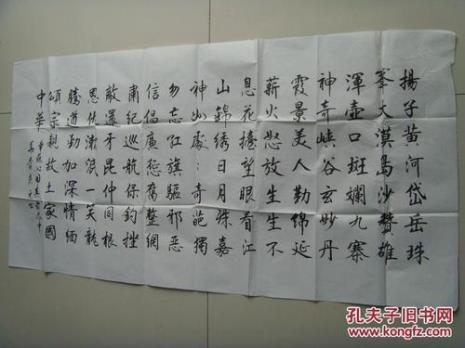 揚子黄河岱岳珠
峯大漠島沙贊雄
渾壺口斑斕九寨
神奇峡谷玄妙丹
霞景美人勤绵延
薪火愁放生生不
息花擔望眼看江
山錦绣日月殊嘉
神山處奇葩獨
勿忘红旗驅邪恶
信倡廣惩腐整網
肅纪巡航保钓挫
敵還牙昆仲同根
恩仇渐泯一笑
勝道劬加深情缅
頌宗親故土家國
中華
孔夫子旧书网
www.kongfz.com